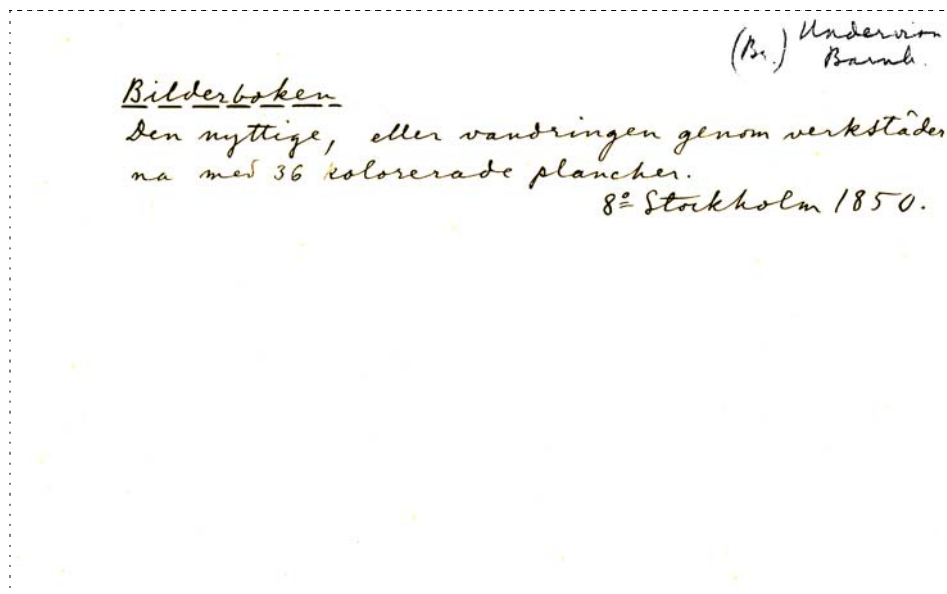 (Br.) Undervisn
Barnb.
Bilderboken
Den nyttige, eller vandringen genom verkstäder
na med 36 kolorerade plancher.
8º Stockholm 1850.